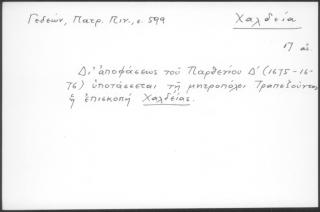 Γεδεών, Πατρ. Πιν., σ. 599
Χαλδεία
17 αἰ.
Δι' ἀποφάσεως τοῦ Παρθενίου Δ' (1675-16-
76) ὑποτάσσεται τῇ μητροπόλει Τραπεζοῦντος
ἡ ἐπισκοπή Χαλδείας.